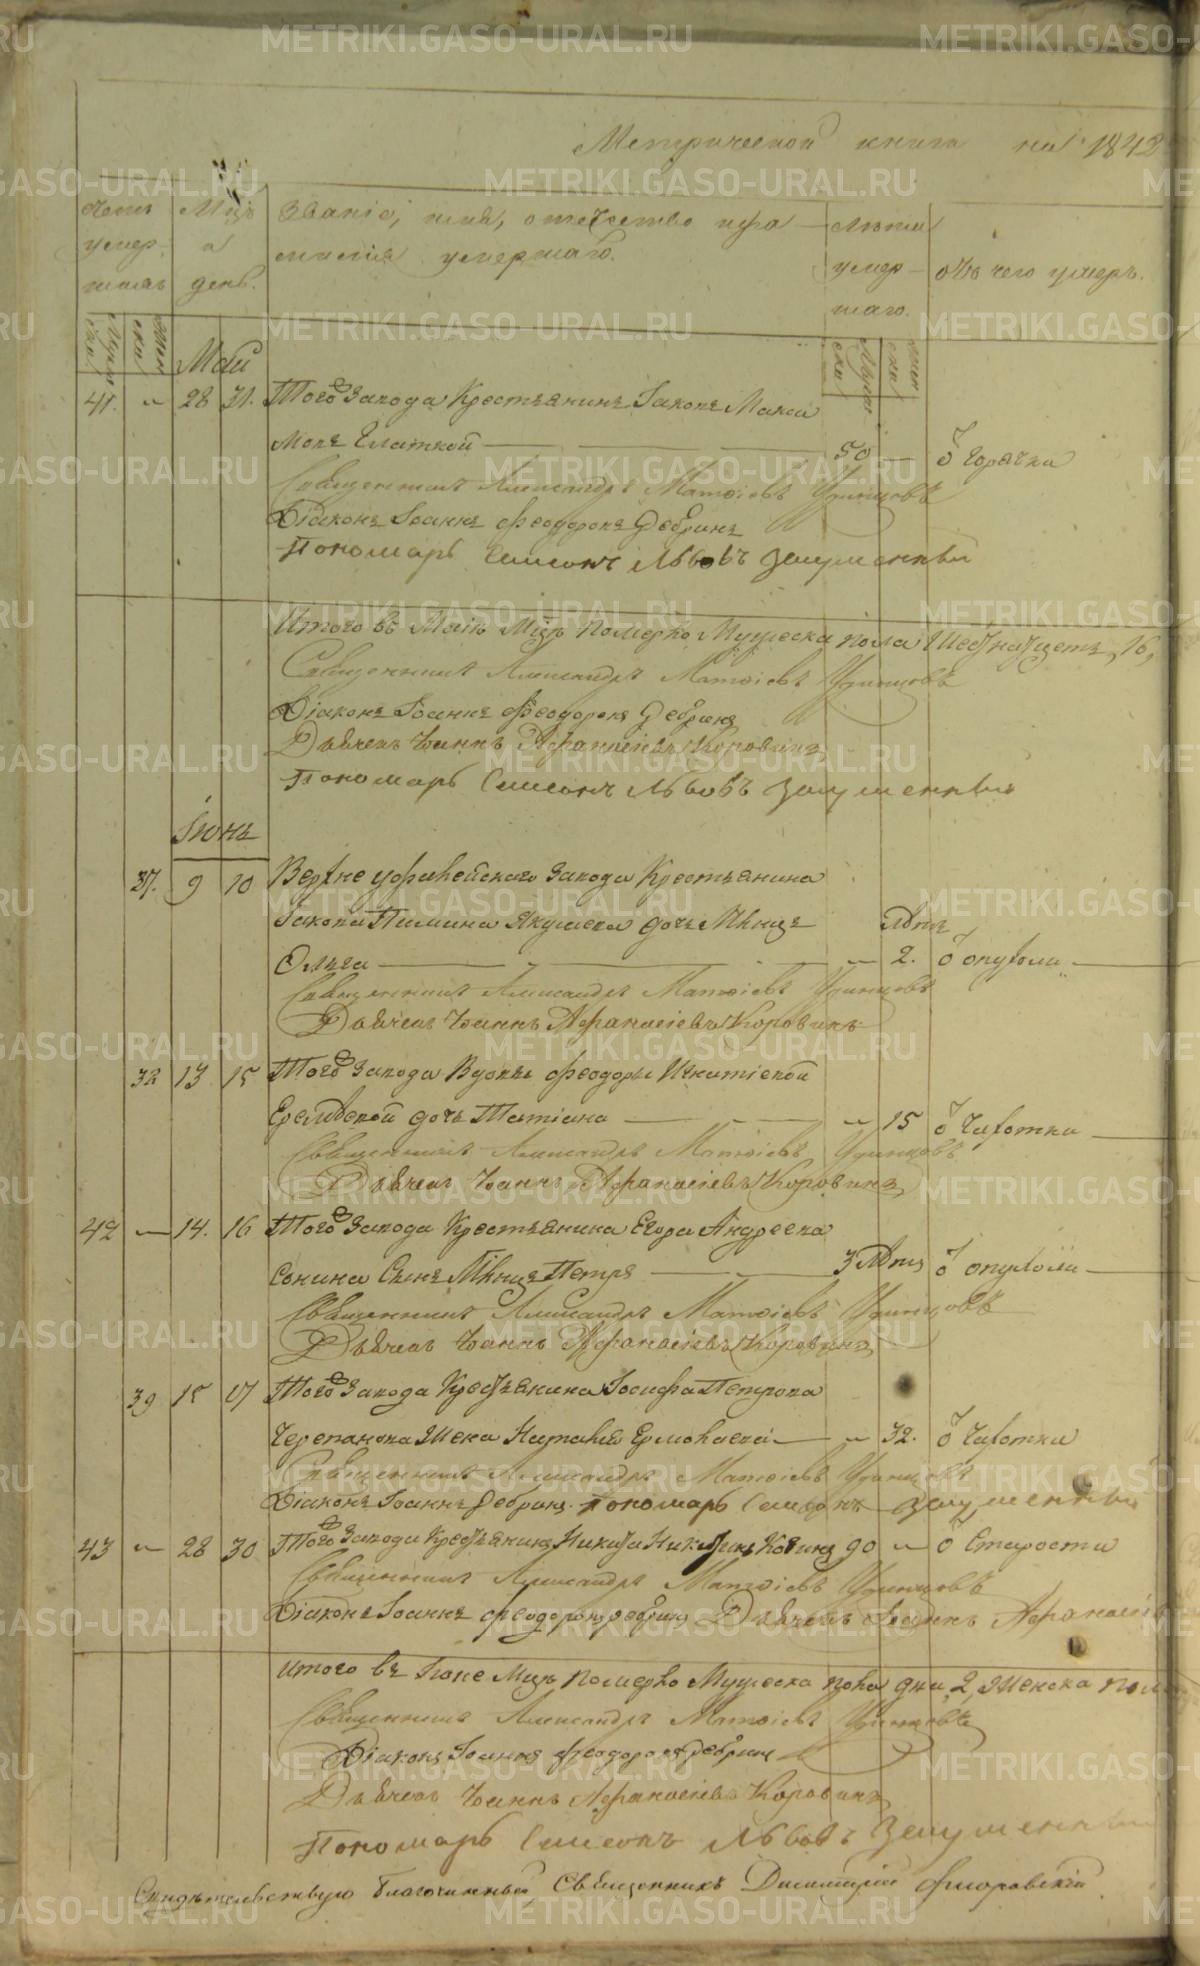 Метрической книги на 1842
Счетъ умершихъ
Мцъ и день.
Званіе, имя, отчество и фамилія умершаго.
Лѣта умершаго.
отъ чего умеръ.
Май
41. " 28 31. Тогоже Завода Крестьянинъ Іаковъ Макси
мовъ Глаткой 50 — ѿ Горячки
Священникъ Александръ Матѳіевъ Удинцовъ
Діаконъ Іоаннъ Феодоровъ Дебринъ
Пономарь Симеонъ Львовъ
Итого въ Маіѣ Мцѣ померло Мужеска пола Шестнатцеть, 16,
Священникъ Александръ Матѳіевъ Удинцовъ
Діаконъ Іоаннъ Феодоровъ Дебринъ
Дьячекъ Іоаннъ Афанасіевъ Коровинъ
Пономарь Симеонъ Львовъ
Іюнь
37. 9 10 Верхне уфалейскаго Завода Крестьянина
Іакова Пимина Якушева дочь Мнца лѣтъ
Ольга " 2. ѿ опухоли
Священникъ Александръ Матѳіевъ Удинцовъ
Дьячекъ Іоаннъ Афанасіевъ Коровинъ
38 13 15 Тогоже Завода Вдовы Феодоры Игнатіевой
дочь Татіана " 15 ѿ Чахотки
Священникъ Александръ Матѳіевъ Удинцовъ
Дьячекъ Іоаннъ Афанасіевъ Коровинъ
42 — 14. 16 Тогоже Завода Крестьянина Егора Андреева
Сонина Сынъ Мнцъ Петръ 3 лѣтъ ѿ опухоли
Священникъ Александръ Матѳіевъ Удинцовъ
Дьячекъ Іоаннъ Афанасіевъ Коровинъ
39 15 17 Тогоже Завода Крестьянина Іосифа Петрова
Черепанова Жена Наталья Ермолаева " 32. ѿ Чахотки
Священникъ Александръ Матѳіевъ Удинцовъ
Діаконъ Іоаннъ Дебринъ. Пономарь Симеонъ
43 " 28 30 Тогоже Завода Крестьянинъ Никита 90 " ѿ Старости
Священникъ Александръ Матѳіевъ Удинцовъ
Діаконъ Іоаннъ Феодоровъ Дебринъ Дьячекъ Іоаннъ Афанасіевъ
Итого въ Іюне Мцѣ померло Мужеска пола два, 2, Женска пола
Священникъ Александръ Матѳіевъ Удинцовъ
Діаконъ Іоаннъ Феодоровъ Дебринъ
Дьячекъ Іоаннъ Афанасіевъ Коровинъ
Пономарь Симеонъ Львовъ
Свидѣтельствую Благочинный Священникъ Димитрій Флоровскій
METRIKI.GASO-URAL.RU